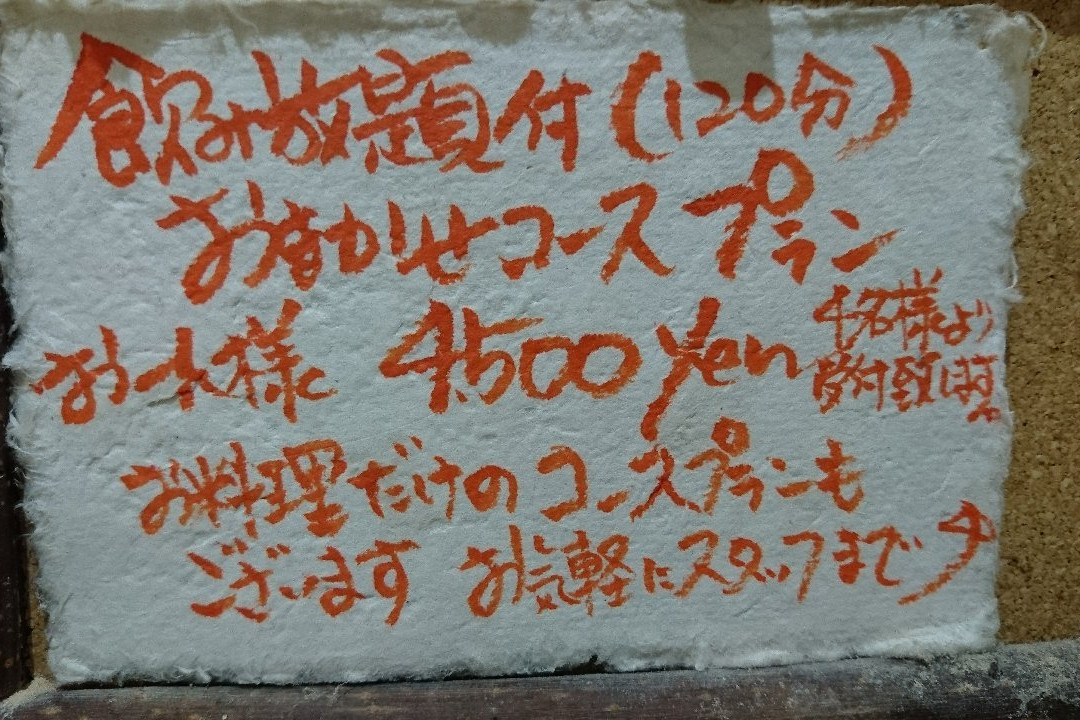 飲み放題付(120分)
おまかせコースプラン
お一人様 4500yen
4名様より
受付致します。
お料理だけのコースプランも
ございます お気軽にスタッフまで